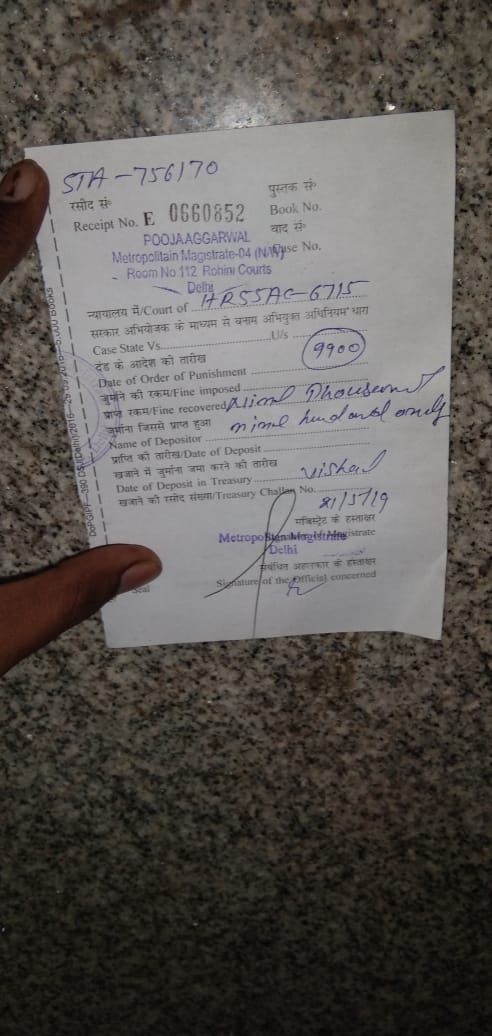 STA-756170
रसीद सं॰
पुस्तक सं॰
Receipt No. E 0660852
Book No.
वाद सं॰
POOJA AGGARWAL
Metropolitain Magistrate-04 (N/W)
Case No.
Room No.112 Rohini Courts
Delhi
न्यायालय में/Court of HR55AC-6715
सरकार अभियोजक के माध्यम से बनाम अभियुक्त अधिनियम धारा
Case State Vs. U/s
दंड के आदेश की तारीख 9900
Date of Order of Punishment
जुर्माने की रकम/Fine imposed
प्राप्त रकम/Fine recovered
जुर्माना जिससे प्राप्त हुआ
Name of Depositor
प्राप्ति की तारीख/Date of Deposit
खजाने में जुर्माना जमा करने की तारीख
Date of Deposit in Treasury Vishal
खजाने की रसीद संख्या/Treasury Challan No.
मजिस्ट्रेट के हस्ताक्षर
Signature of Magistrate
Metropolitan Magistrate
Delhi
संबंधित अहलकार के हस्ताक्षर
Signature of the Official concerned
Seal